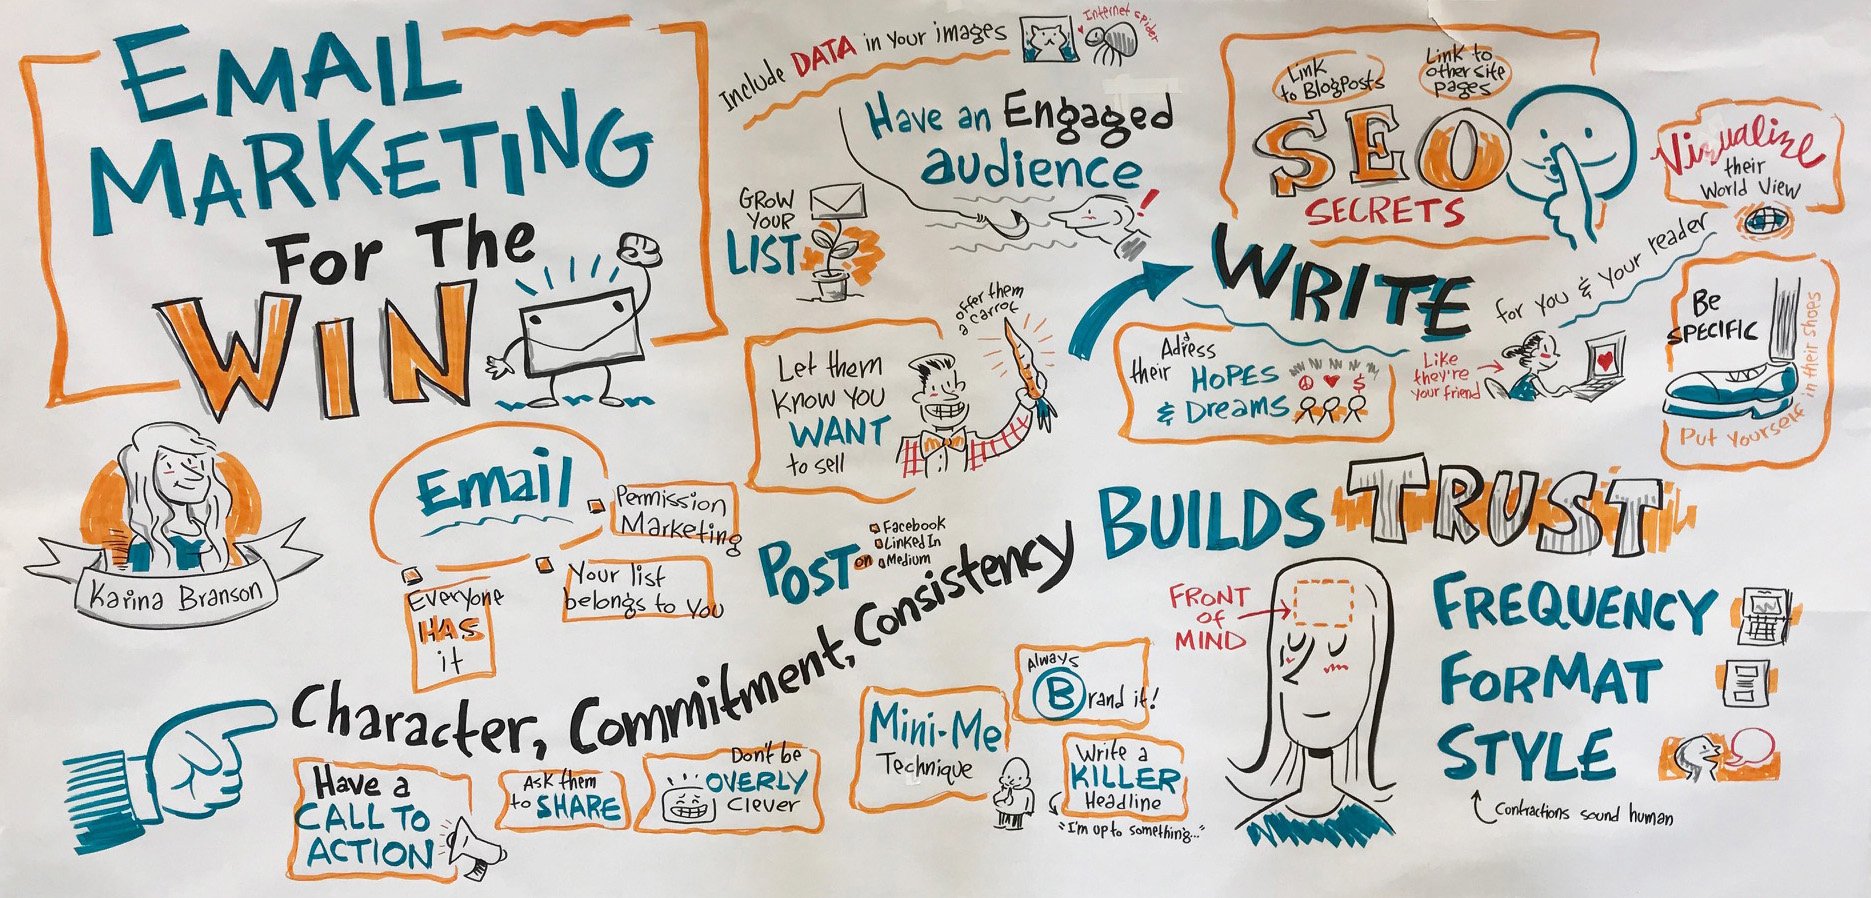 EMAIL
MARKETING
For The
WIN
Karina Branson
Email
Permission
Marketing
Your list
belongs to You
Everyone
HAS
it
Include DATA in your images
Internet spider
Have an Engaged
audience
GROW
YOUR
LIST
offer them
a carrot
Let them
Know you
WANT
to sell
Link
to BlogPosts
Link to
other site
pages
SEO
SECRETS
Visualize
their
World View
WRITE
for you & your reader
Adress
their HOPES
& Dreams
$
Like
they're
your friend
Be
SPECIFIC
Put yourself in their shoes
POST on
Facebook
LinkedIn
Medium
Character, Commitment, Consistency
BUILDS TRUST
Have a
CALL TO
ACTION
Ask them
to SHARE
Don't be
OVERLY
Clever
Mini-Me
Technique
Always
Brand it!
Write a
KILLER
Headline
"I'm up to something..."
FRONT
of
MIND
FREQUENCY
FORMAT
STYLE
Contractions sound human